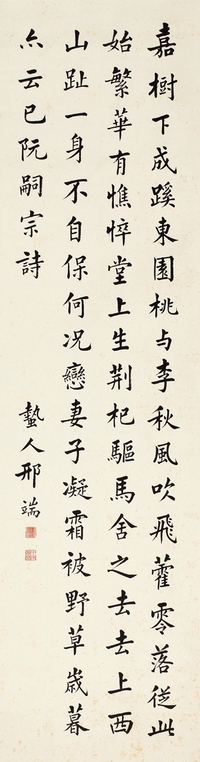 嘉樹下成蹊東園桃与李秋風吹飛藿零落從此
始繁華有憔悴堂上生荆杞驅馬舍之去去上西
山趾一身不自保何况戀妻子凝霜被野草歲暮
亦云已阮嗣宗詩
蟄人邢端